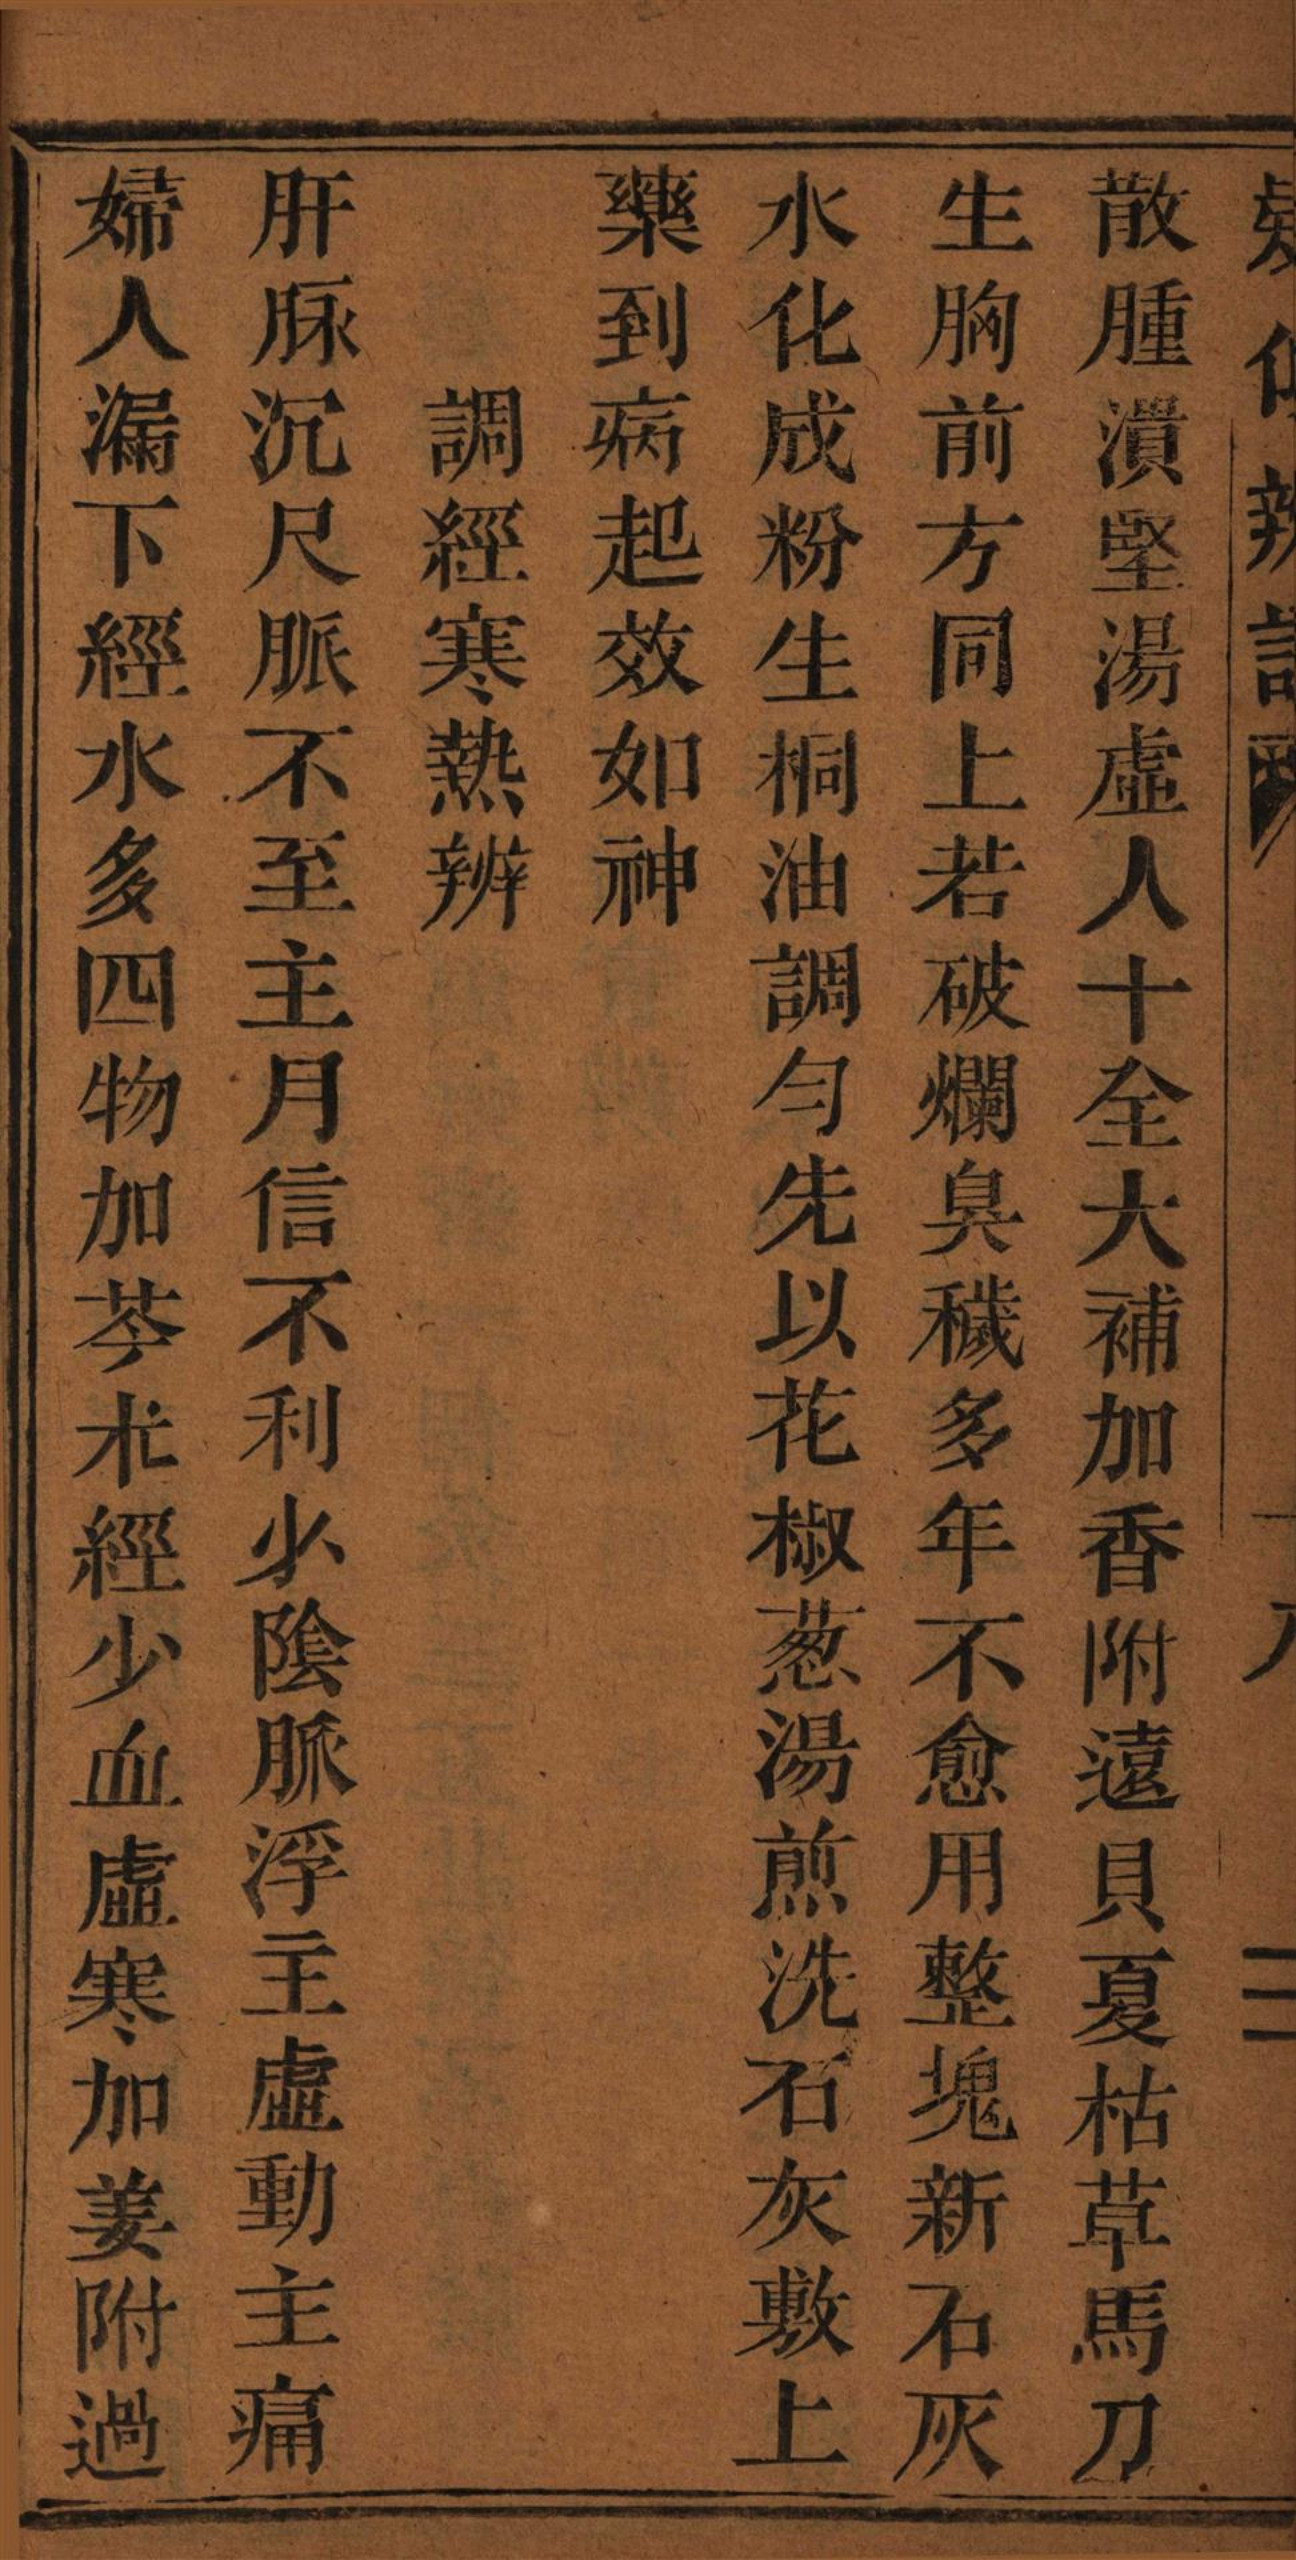 散腫潰堅湯虛人十全大補加香附遠貝夏枯草馬刀
生胸前方同上若破爛臭穢多年不愈用整塊新石灰
水化成粉生桐油調勻先以花椒葱湯煎洗石灰敷上
藥到病起效如神
調經寒熱辨
肝脉沉尺脈不至主月信不利少陰脈浮主虛動主痛
婦人漏下經水多四物加芩朮經少血虛寒加姜附過